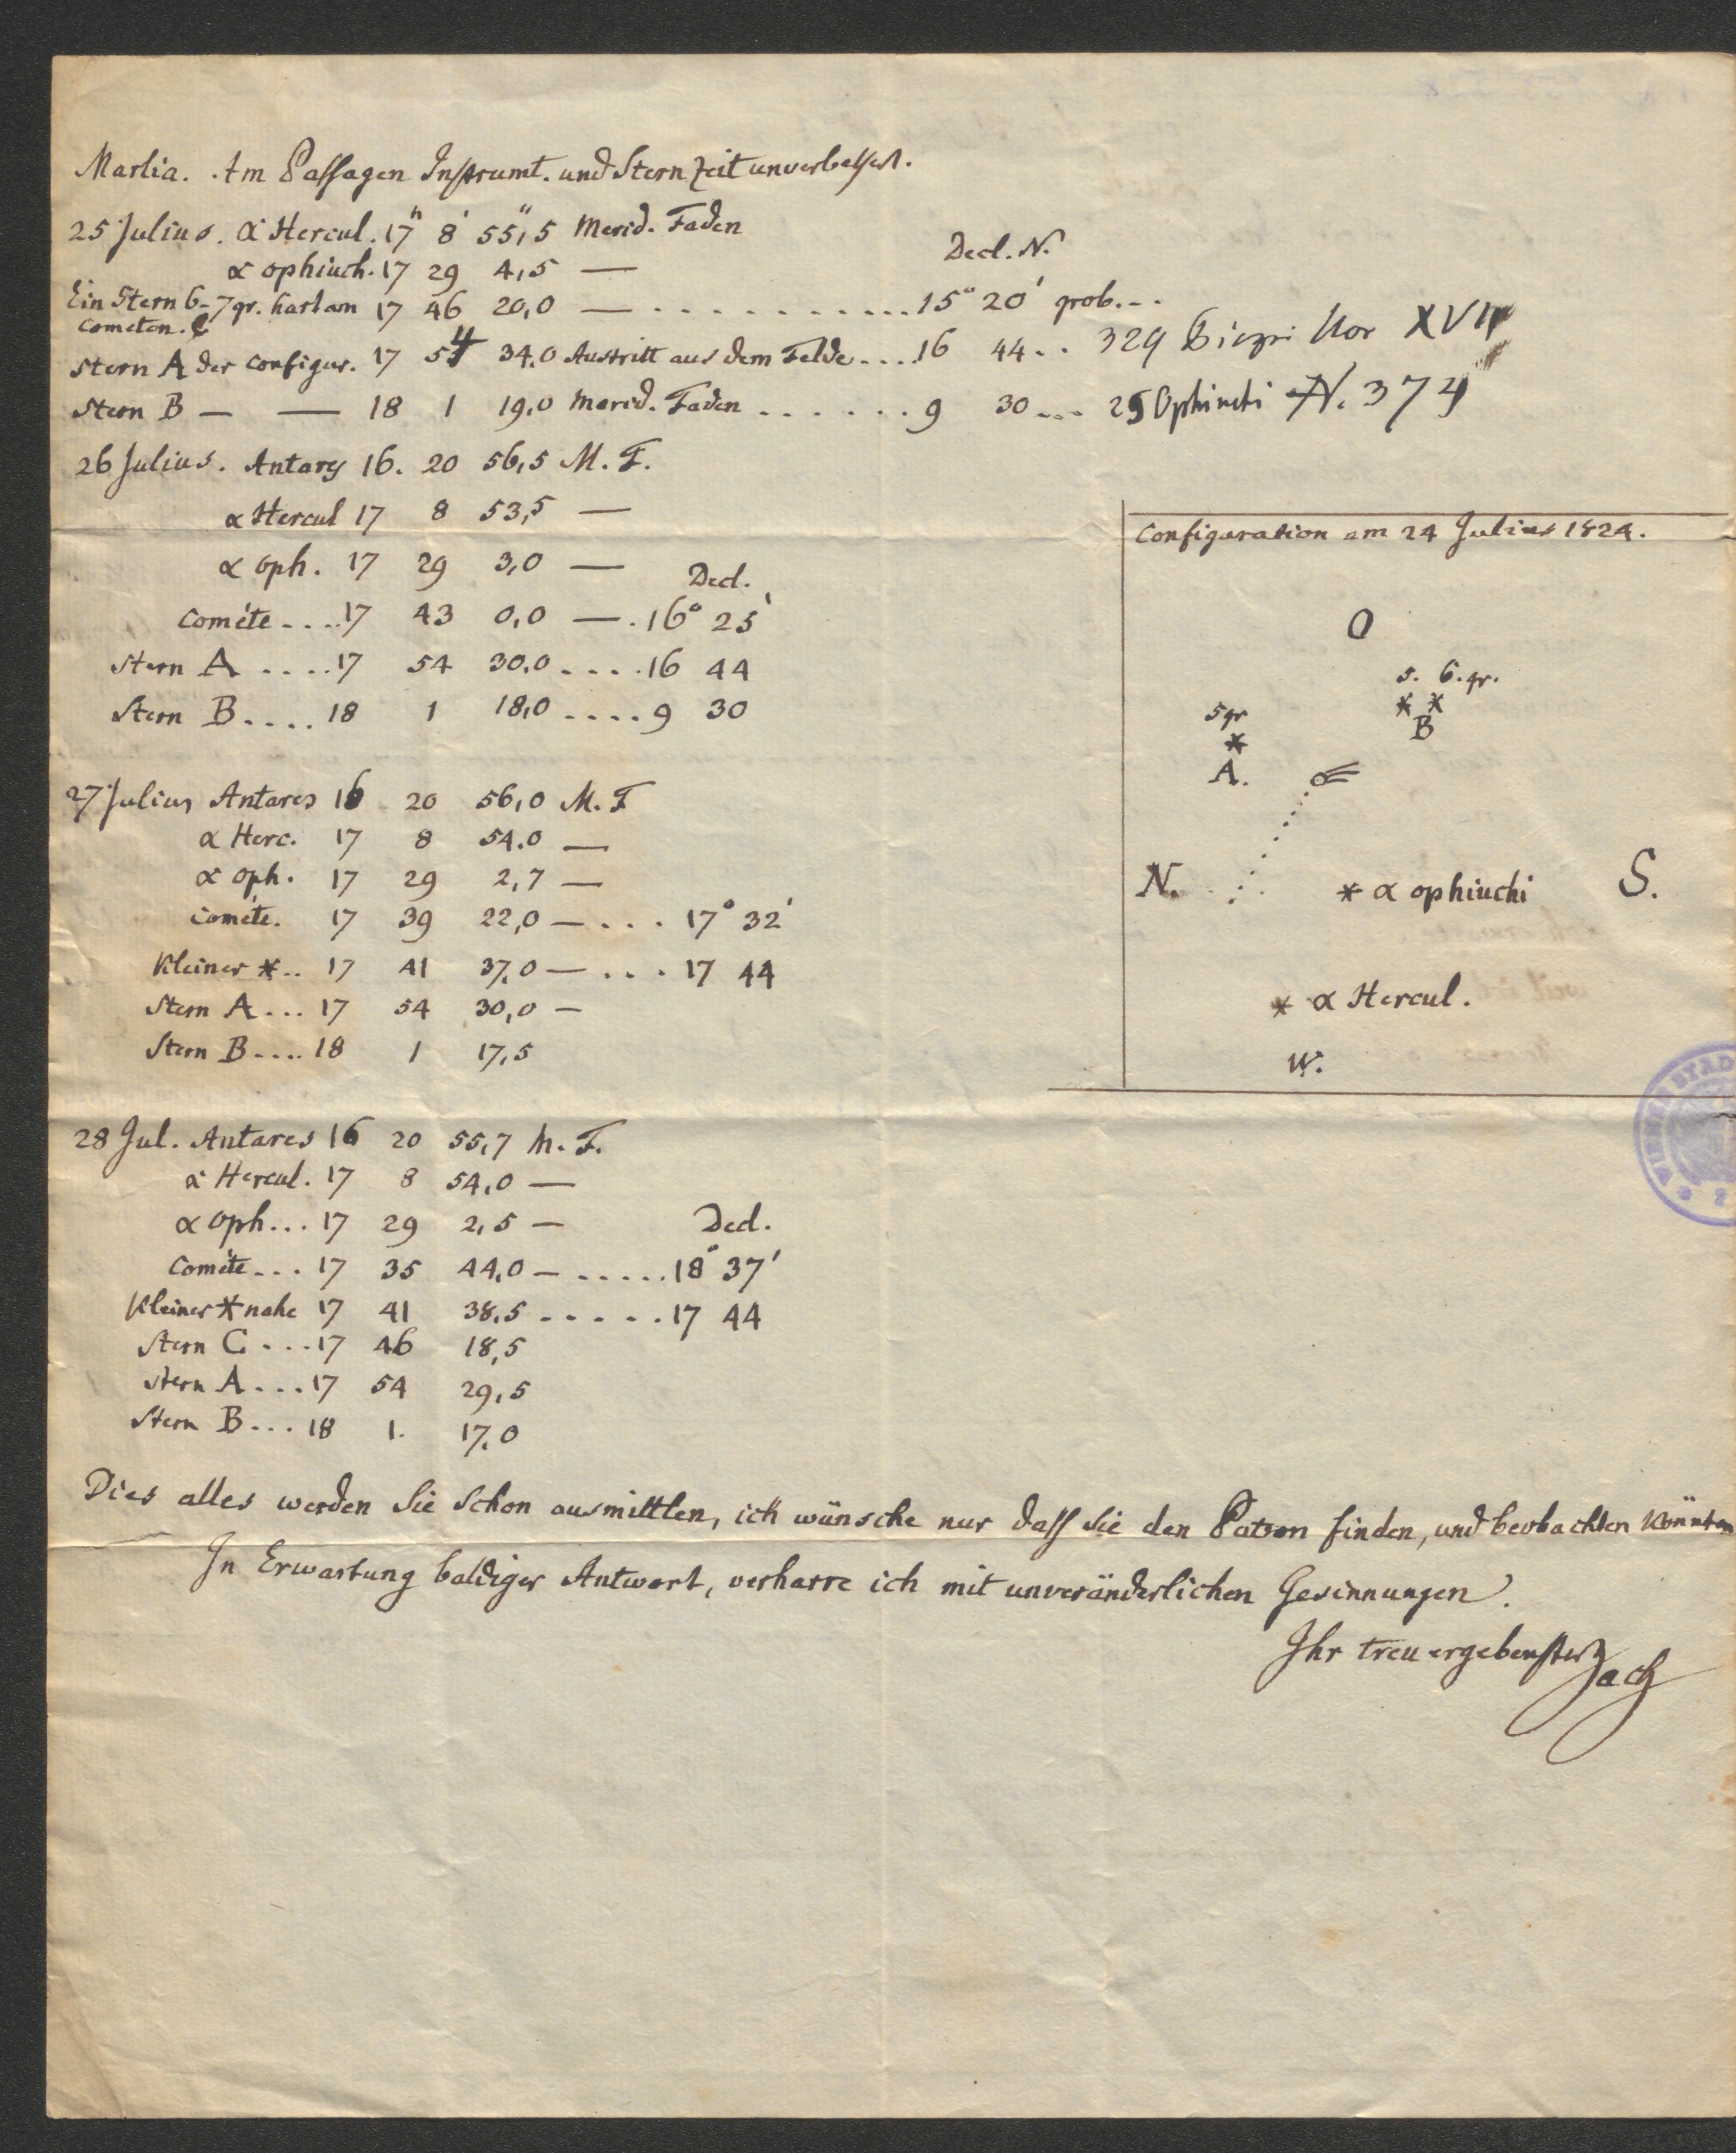 Marlia. Am Passagen Instrumt. und Stern Zeit unverbessert.
25 Julius. α Hercul. 17h 8' 55",5 Merid. Faden
Decl. N.
α ophiuch. 17 29 4,5 —
Ein Stern 6-7 gr. hart am 17 46 20,0 — . . . . . . . . . . . 15° 20' grob. . .
Cometen. C
Stern A der Configur. 17 54 34,0 Austritt aus dem Felde . . . 16 44 . . 329 Hor XVII
Stern B — — 18 1 19,0 Merid. Faden . . . . . . 9 30 . . . Ophiuchi N. 374
26 Julius. Antary 16. 20 56,5 M. F.
α Hercul 17 8 53,5 —
α Oph. 17 29 3,0 — Decl.
Comète . . . . 17 43 0,0 — . 16° 25'
Stern A . . . . 17 54 30,0 . . . . 16 44
Stern B . . . . 18 1 18,0 . . . . 9 30
27 Julius Antares 16 20 56,0 M. F
α Herc. 17 8 54,0 —
α Oph. 17 29 2,7 —
Comète. 17 39 22,0 — . . . 17° 32'
Kleiner * . . 17 41 37,0 — . . . 17 44
Stern A . . . 17 54 30,0 —
Stern B . . . . 18 1 17,5
28 Jul. Antares 16 20 55,7 M. F.
α Hercul. 17 8 54,0 —
α Oph . . . 17 29 2,5 — Decl.
Comète . . . 17 35 44,0 — . . . . . 18° 37'
Kleiner * nahe 17 41 38,5 . . . . . 17 44
Stern C . . . 17 46 18,5
Stern A . . . 17 54 29,5
Stern B . . . 18 1. 17,0
Configuration am 24 Julius 1824.
O
5. 6. gr.
* *
B
5 gr
*
A.
N.
* α ophiuchi
S.
* α Hercul.
W.
Dies alles werden Sie schon ausmittlen, ich wünsche nur dass Sie den Patron finden, und beobachten könnten
In Erwartung baldiger Antwort, verharre ich mit unveränderlichen Gesinnungen.
Ihr treu ergebenster Zach